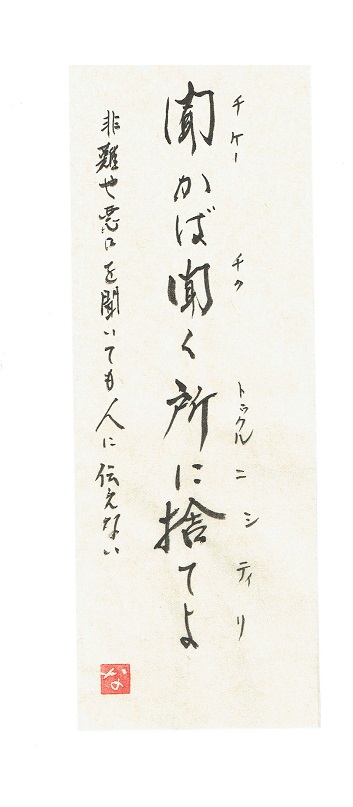 チケー チク トゥクル ニ シティリ
聞かば聞く所に捨てよ
非難や悪口を聞いても人に伝えない
な